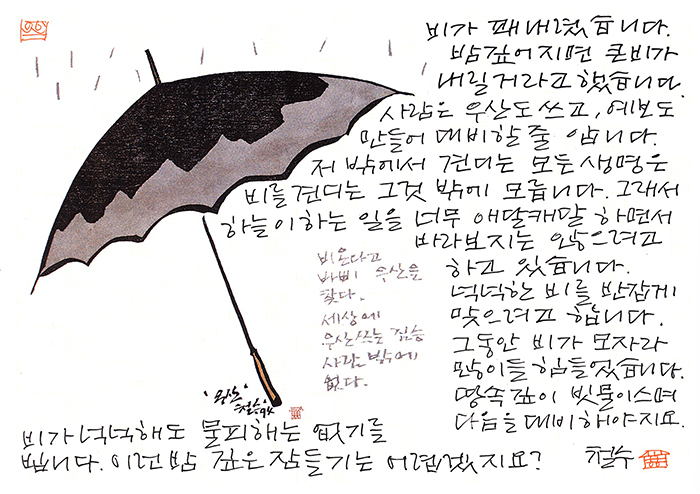 비가 꽤 내렸습니다.
밤 깊어지면 큰비가
내릴거라고 했습니다.
사람은 우산도 쓰고, 예보도
만들어 대비할 줄 압니다.
저 밖에서 견디는 모든 생명은
비를 견디는 그것 밖에 모릅니다. 그래서
하늘이 하는 일을 너무 애달캐달 하면서
바라보지는 않으려고
하고 있습니다.
넉넉한 비를 반갑게
맞으려고 합니다.
그동안 비가 모자라
많이들 힘들었습니다.
땅속 깊이 빗물이 스며
다음을 대비해야지요.
비가 넉넉해도 물피해는 없기를
빕니다. 이런 밤 깊은 잠들기는 어렵겠지요?
철수
비온다고
바삐 우산을
찾다.
세상에
우산쓰는 짐승
사람밖에
없다.
'우산'
철수 94